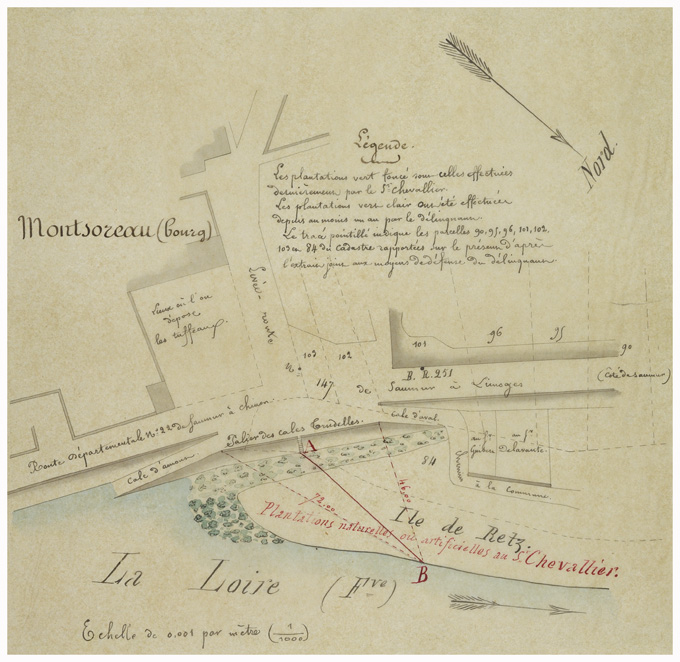 Nord.
Légende.
Les plantations vert foncé sont celles effectuées
dernièrement par le Sr. Chevallier
Les plantations vert clair ont été effectuées
depuis au moins un an par le délinquant
Le tracé pointillé indique les parcelles 90, 95, 96, 101, 102,
103 et 84 du cadastre rapportées sur le présent d'après
l'extrait joint aux moyens de défense du délinquant
Montsoreau (bourg)
Levée route
Lieux où l'on
dépose
les tuffeaux.
103
102
101
96
95
90
147
B. K. 251
de Saumur à Limoges
(Côté de Saumur)
Route Départementale No. 22 de Saumur à Chinon
Palier des cales Trudelles.
cale d'aval.
cale d'amont
A
84
à la Commune
72.00
46.00
Ile de Retz.
Plantations naturelles ou artificielles au Sr. Chevallier.
B
La Loire (Fve)
Echelle de 0.001 par mètre (1/1000)